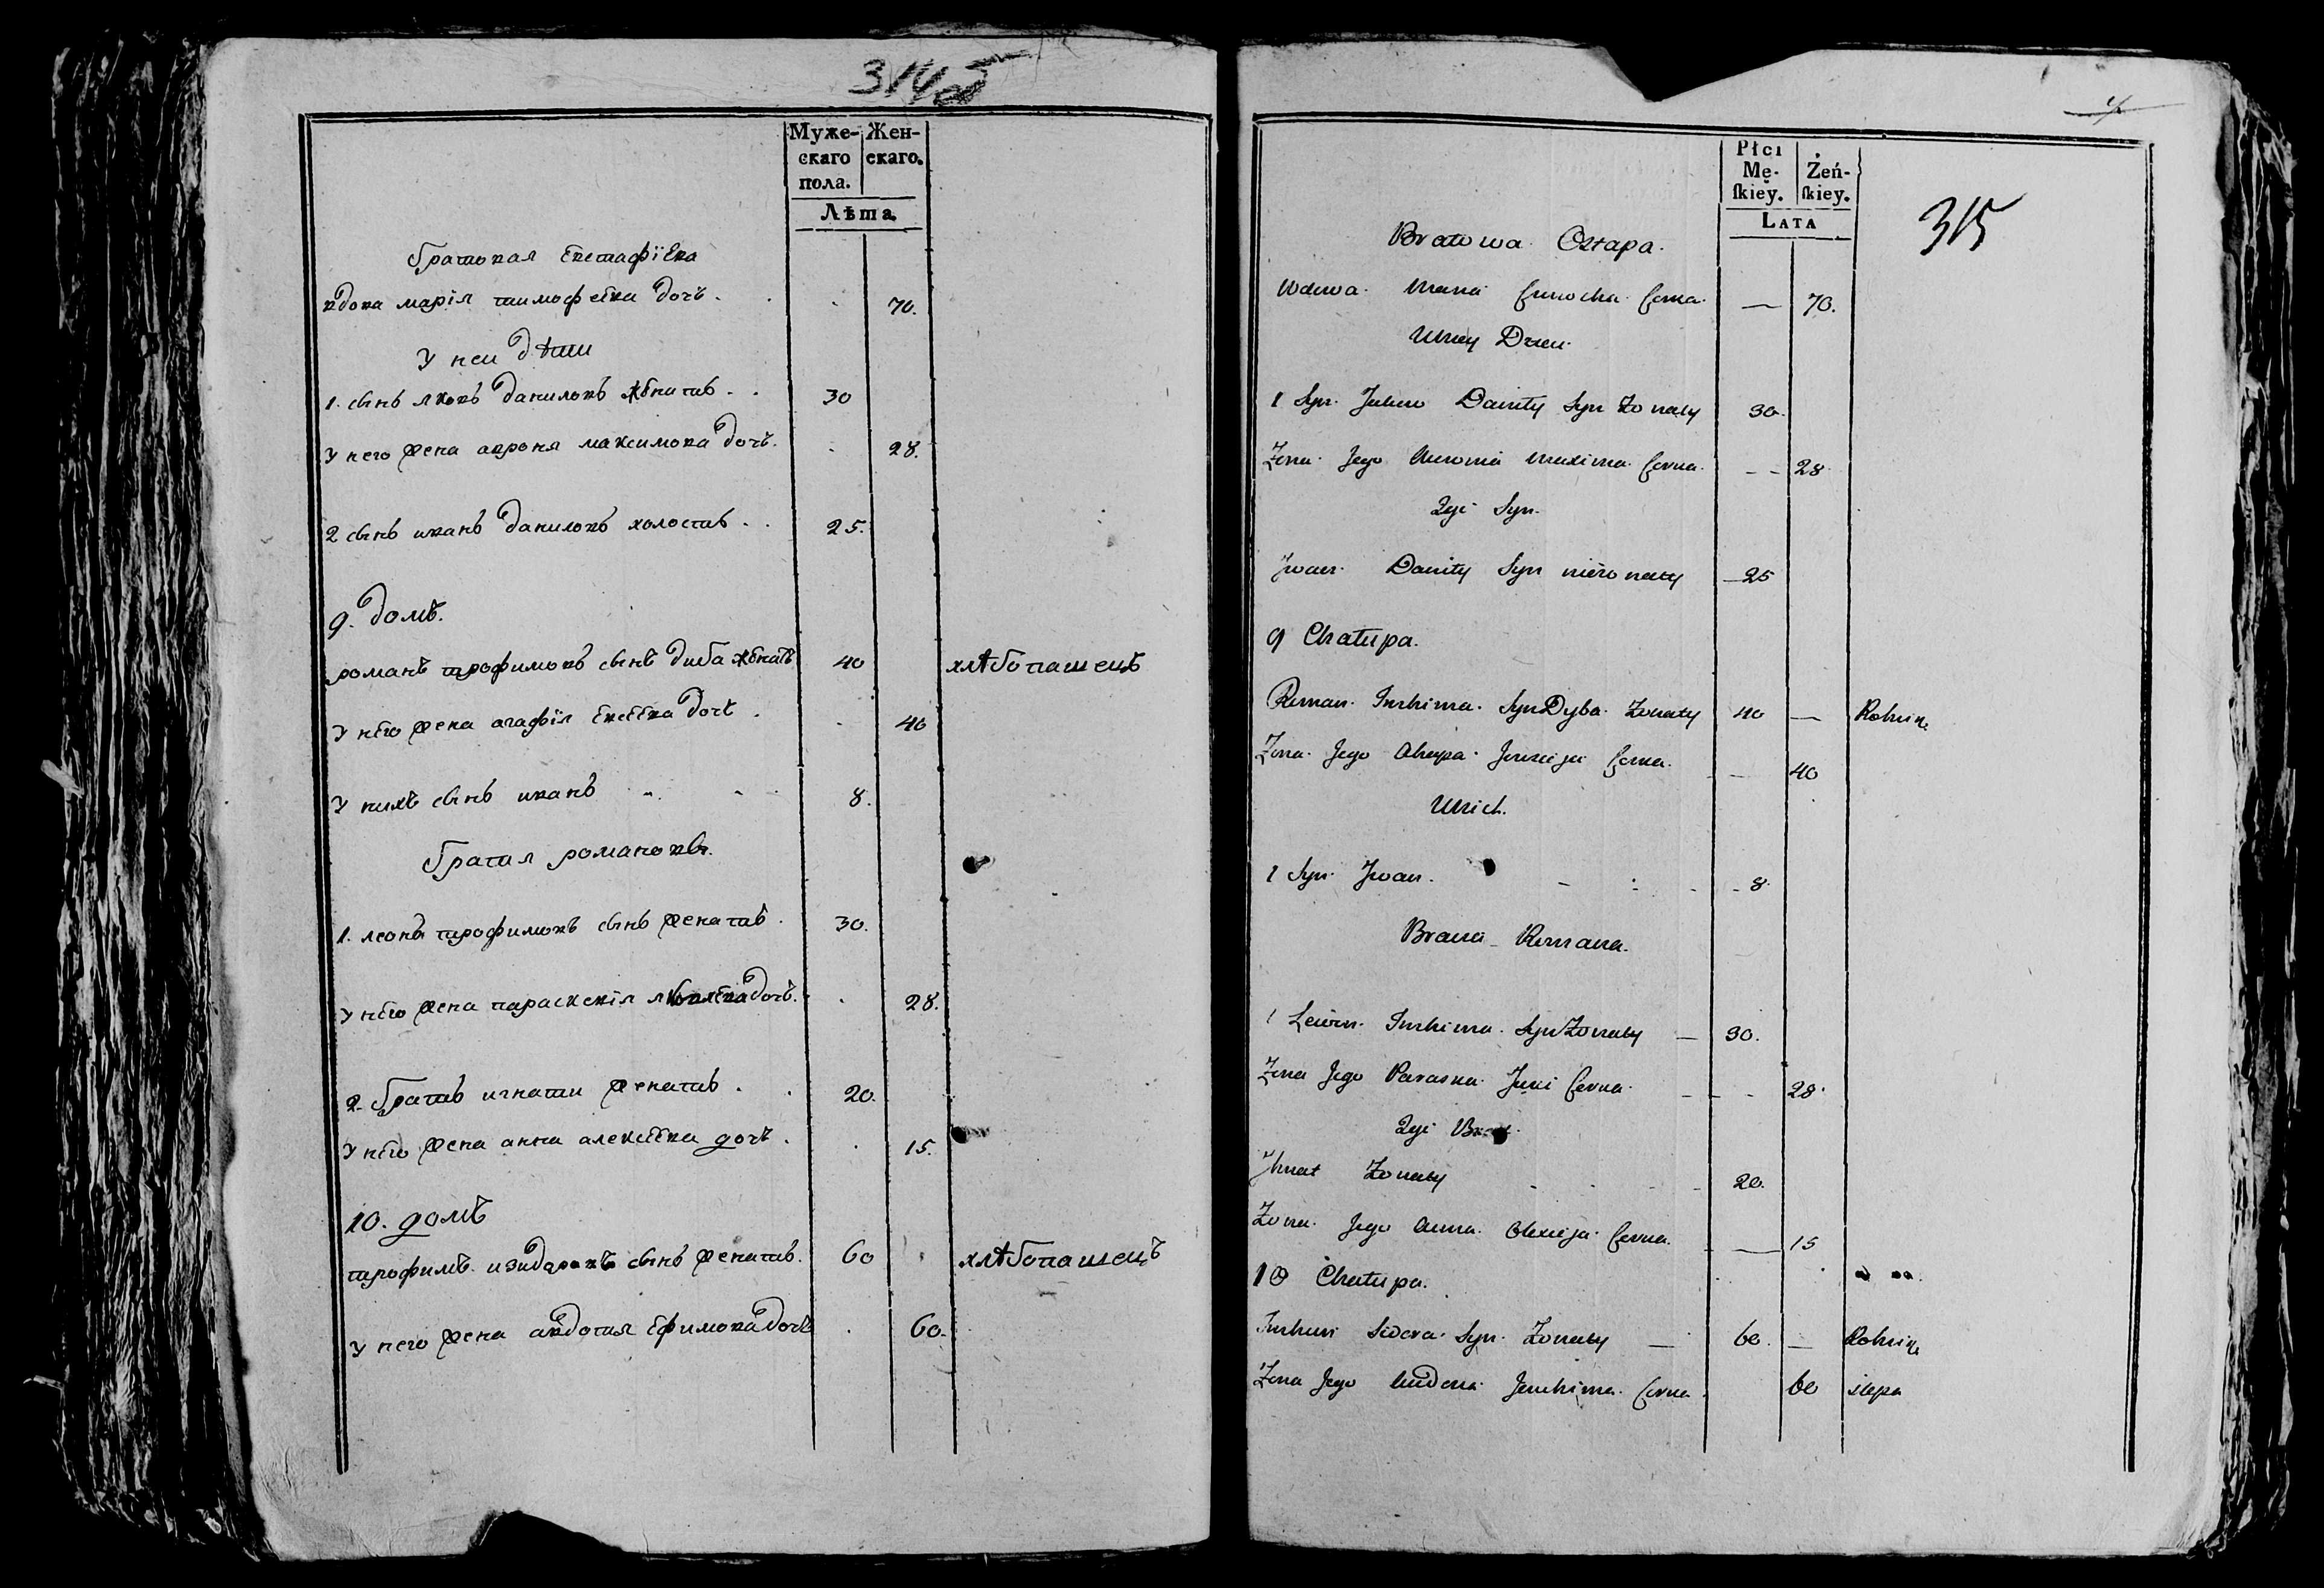 314об
Муже- Жен-
скаго скаго.
пола.
Лѣта.
братовая Евстафіева
вдова марія тимофеева дочь . . 70.
У неи дѣти
1. сынъ яковъ даниловъ жѣнатъ . . 30
У него жена авроня максимова дочь. 28.
2 сынъ иванъ даниловъ холостъ . . 25.
9. домъ.
романъ трофимовъ сынъ диба жѣнатъ 40 хлѣбопашецъ
У него жена агафія Евсѣева дочь . 40
У нихъ сынъ иванъ 8.
братья романовы.
1. леонъ трофимовъ сынъ женатъ . 30.
У него жена параскевія дочь. 28.
2. братъ игнати женатъ . . 20.
У него жена анна алексѣева дочь . 15.
10. домъ
трофимъ изидаровъ сынъ женатъ. 60 хлѣбопашецъ
У него жена авдотия Ефимова дочь 60.
4
315
Płci
Mę- Żeń-
ſkiey. ſkiey.
LATA
Bratowa Ostapa.
Wdowa Maria Corka — 70.
U niey Dzieci
1 Syn Jakow Daniły Syn Zonaty 30.
Zona Jego Auronia Maxima Corka — 28
2gi Syn.
Jwan Daniły Syn niezonaty 25
9 Chałupa.
Roman Syn Dyba Zonaty 40 — Rolnik
Zona Jego Ahapa Corka. — 40
U nich.
1 Syn Jwan. 8.
Bracia Romana.
1 Lewon Syn Zonaty — 30.
Zona Jego Paraska Corka. 28.
2gi Brat.
Jhnat Zonaty 20.
Zona Jego Anna Olexieja Corka. — 15
10 Chałupa.
Sidora Syn Zonaty — 60. — Rolnik
Zona Jego Jauchima Corka 60 slepa